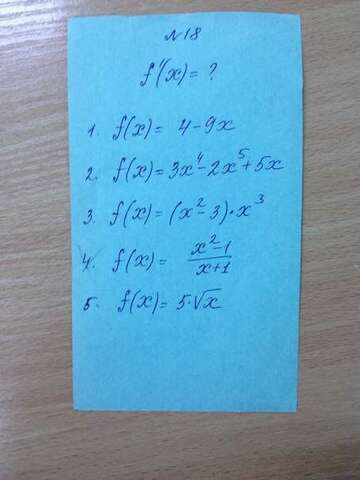 №18
f'(x) = ?
1. f(x) = 4 - 9x
2. f(x) = 3x⁴ - 2x⁵ + 5x
3. f(x) = (x² - 3) · x³
4. f(x) = (x² - 1)/(x + 1)
5. f(x) = 5 · √x